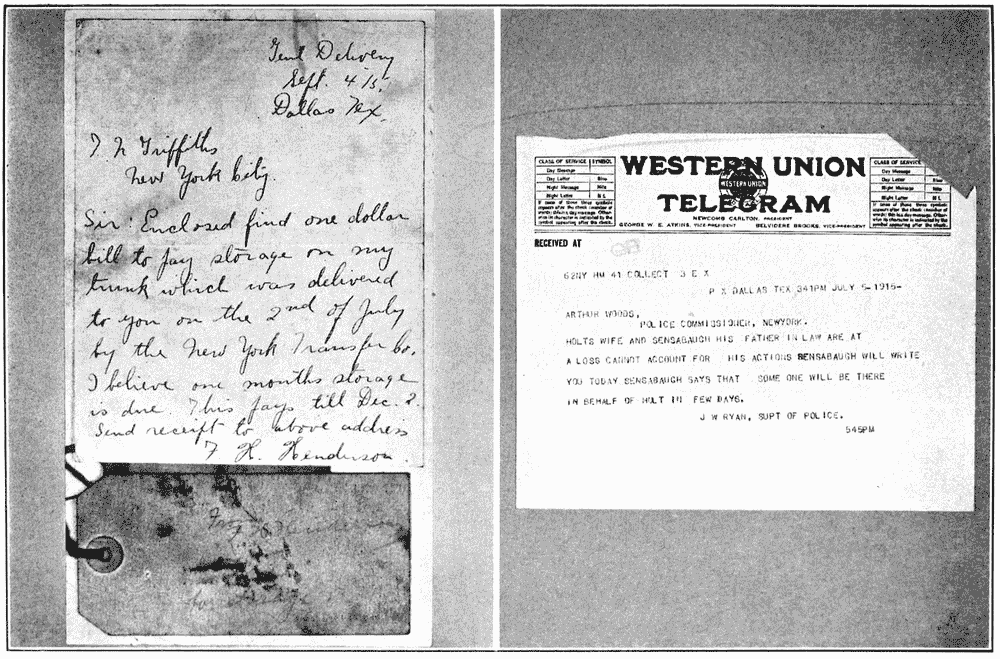 Genl Delivery
Sept. 4 15.
Dallas Tex.
New York City.
Sir: Enclosed find one dollar
bill to pay storage on my
trunk which was delivered
to you on the 2nd of July
by the New York Transfer Co.
I believe one months storage
is due. This pays till Dec. 2.
Send receipt to above address
F. H. Henderson.
CLASS OF SERVICE SYMBOL
Day Message
Day Letter Blue
Night Message Nite
Night Letter N L
If none of these three symbols
appears after the check (number of
words) this is a day message. Other-
wise its character is indicated by the
symbol appearing after the check.
WESTERN UNION
WESTERN UNION
TELEGRAM
NEWCOMB CARLTON, PRESIDENT
GEORGE W. E. ATKINS, VICE-PRESIDENT BELVIDERE BROOKS, VICE-PRESIDENT
CLASS OF SERVICE
Day Message
Day Letter Blue
Night Message Nite
Night Letter N L
If none of these three symbols
appears after the check (number of
words) this is a day message. Other-
wise its character is indicated by the
symbol appearing after the check.
RECEIVED AT
62NY HM 41 COLLECT 3 E X
P X DALLAS TEX 341PM JULY 5-1915-
ARTHUR WOODS,
POLICE COMMISSIONER, NEWYORK.
HOLTS WIFE AND SENSABAUGH HIS FATHER IN LAW ARE AT
A LOSS CANNOT ACCOUNT FOR HIS ACTIONS SENSABAUGH WILL WRITE
YOU TODAY SENSABAUGH SAYS THAT SOME ONE WILL BE THERE
IN BEHALF OF HOLT IN FEW DAYS.
J W RYAN, SUPT OF POLICE.
545PM